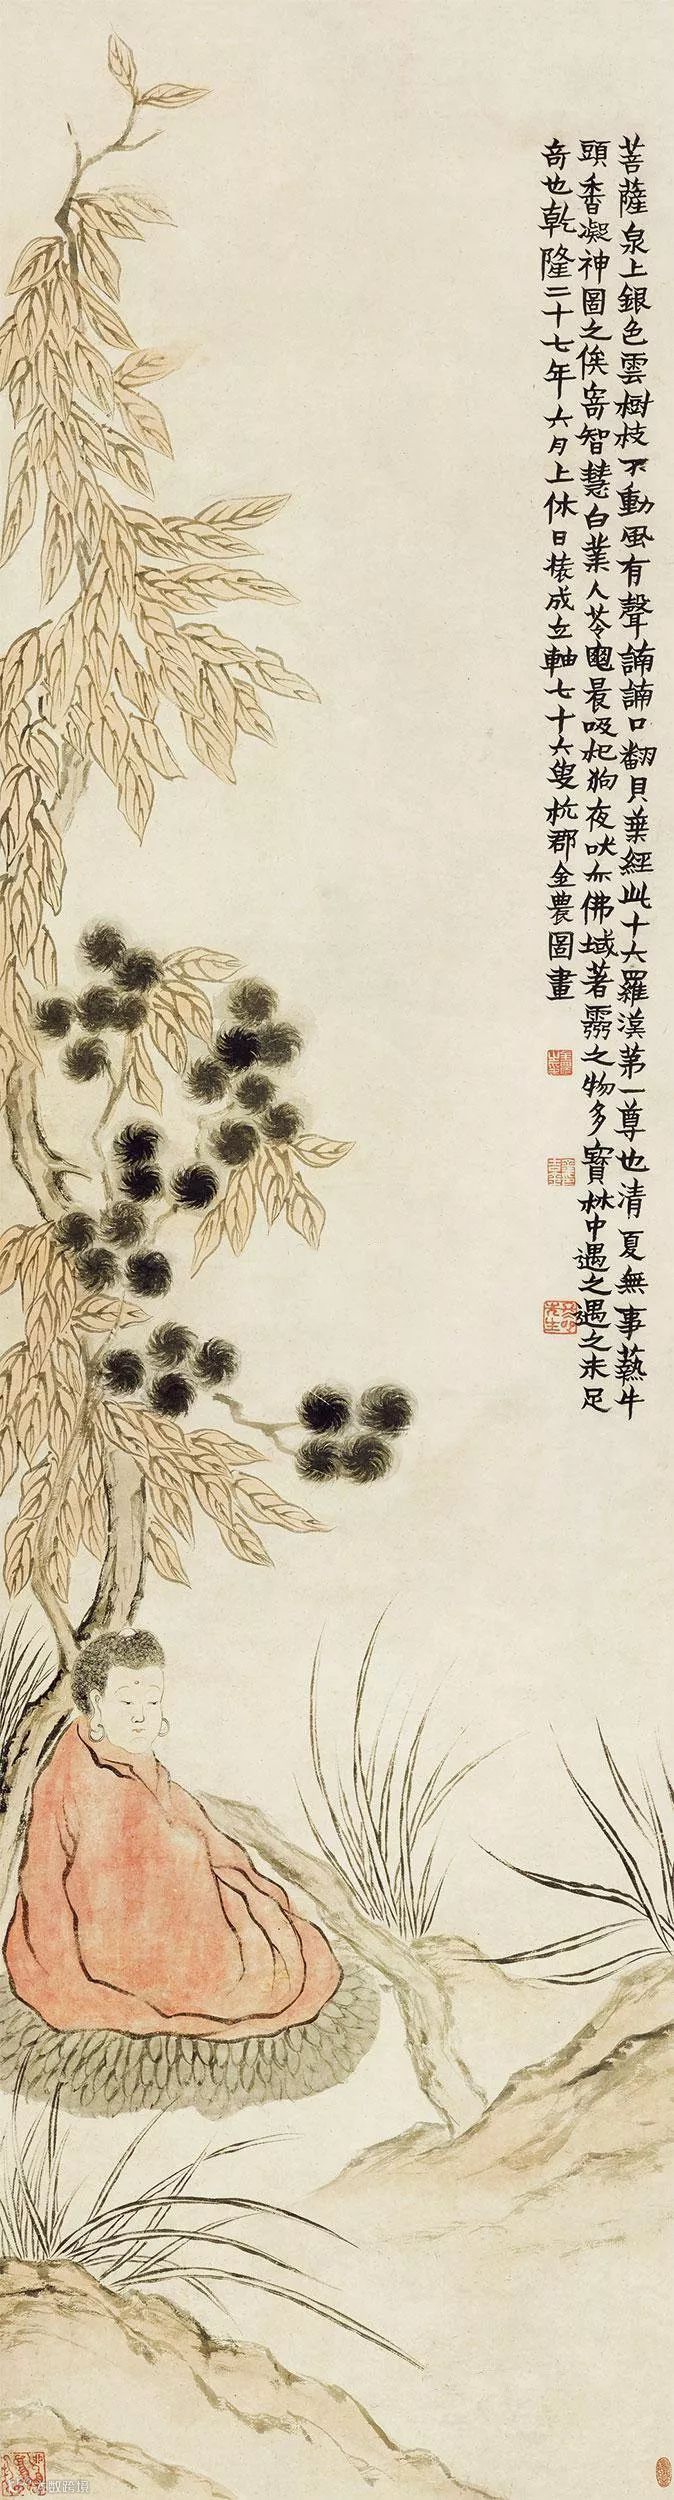 菩薩泉上銀色雲樹枝不動風有聲諵諵口翻貝葉經此十六羅漢第一尊也清夏無事爇牛
頭香凝神圖之俟寄智慧白業人苓龜晨吸杞狗夜吠亦佛域著靈之物多寶林中遇之遇之未足
奇也乾隆二十七年六月上休日裱成立軸七十六叟杭郡金農圖畫
先生
數跨境